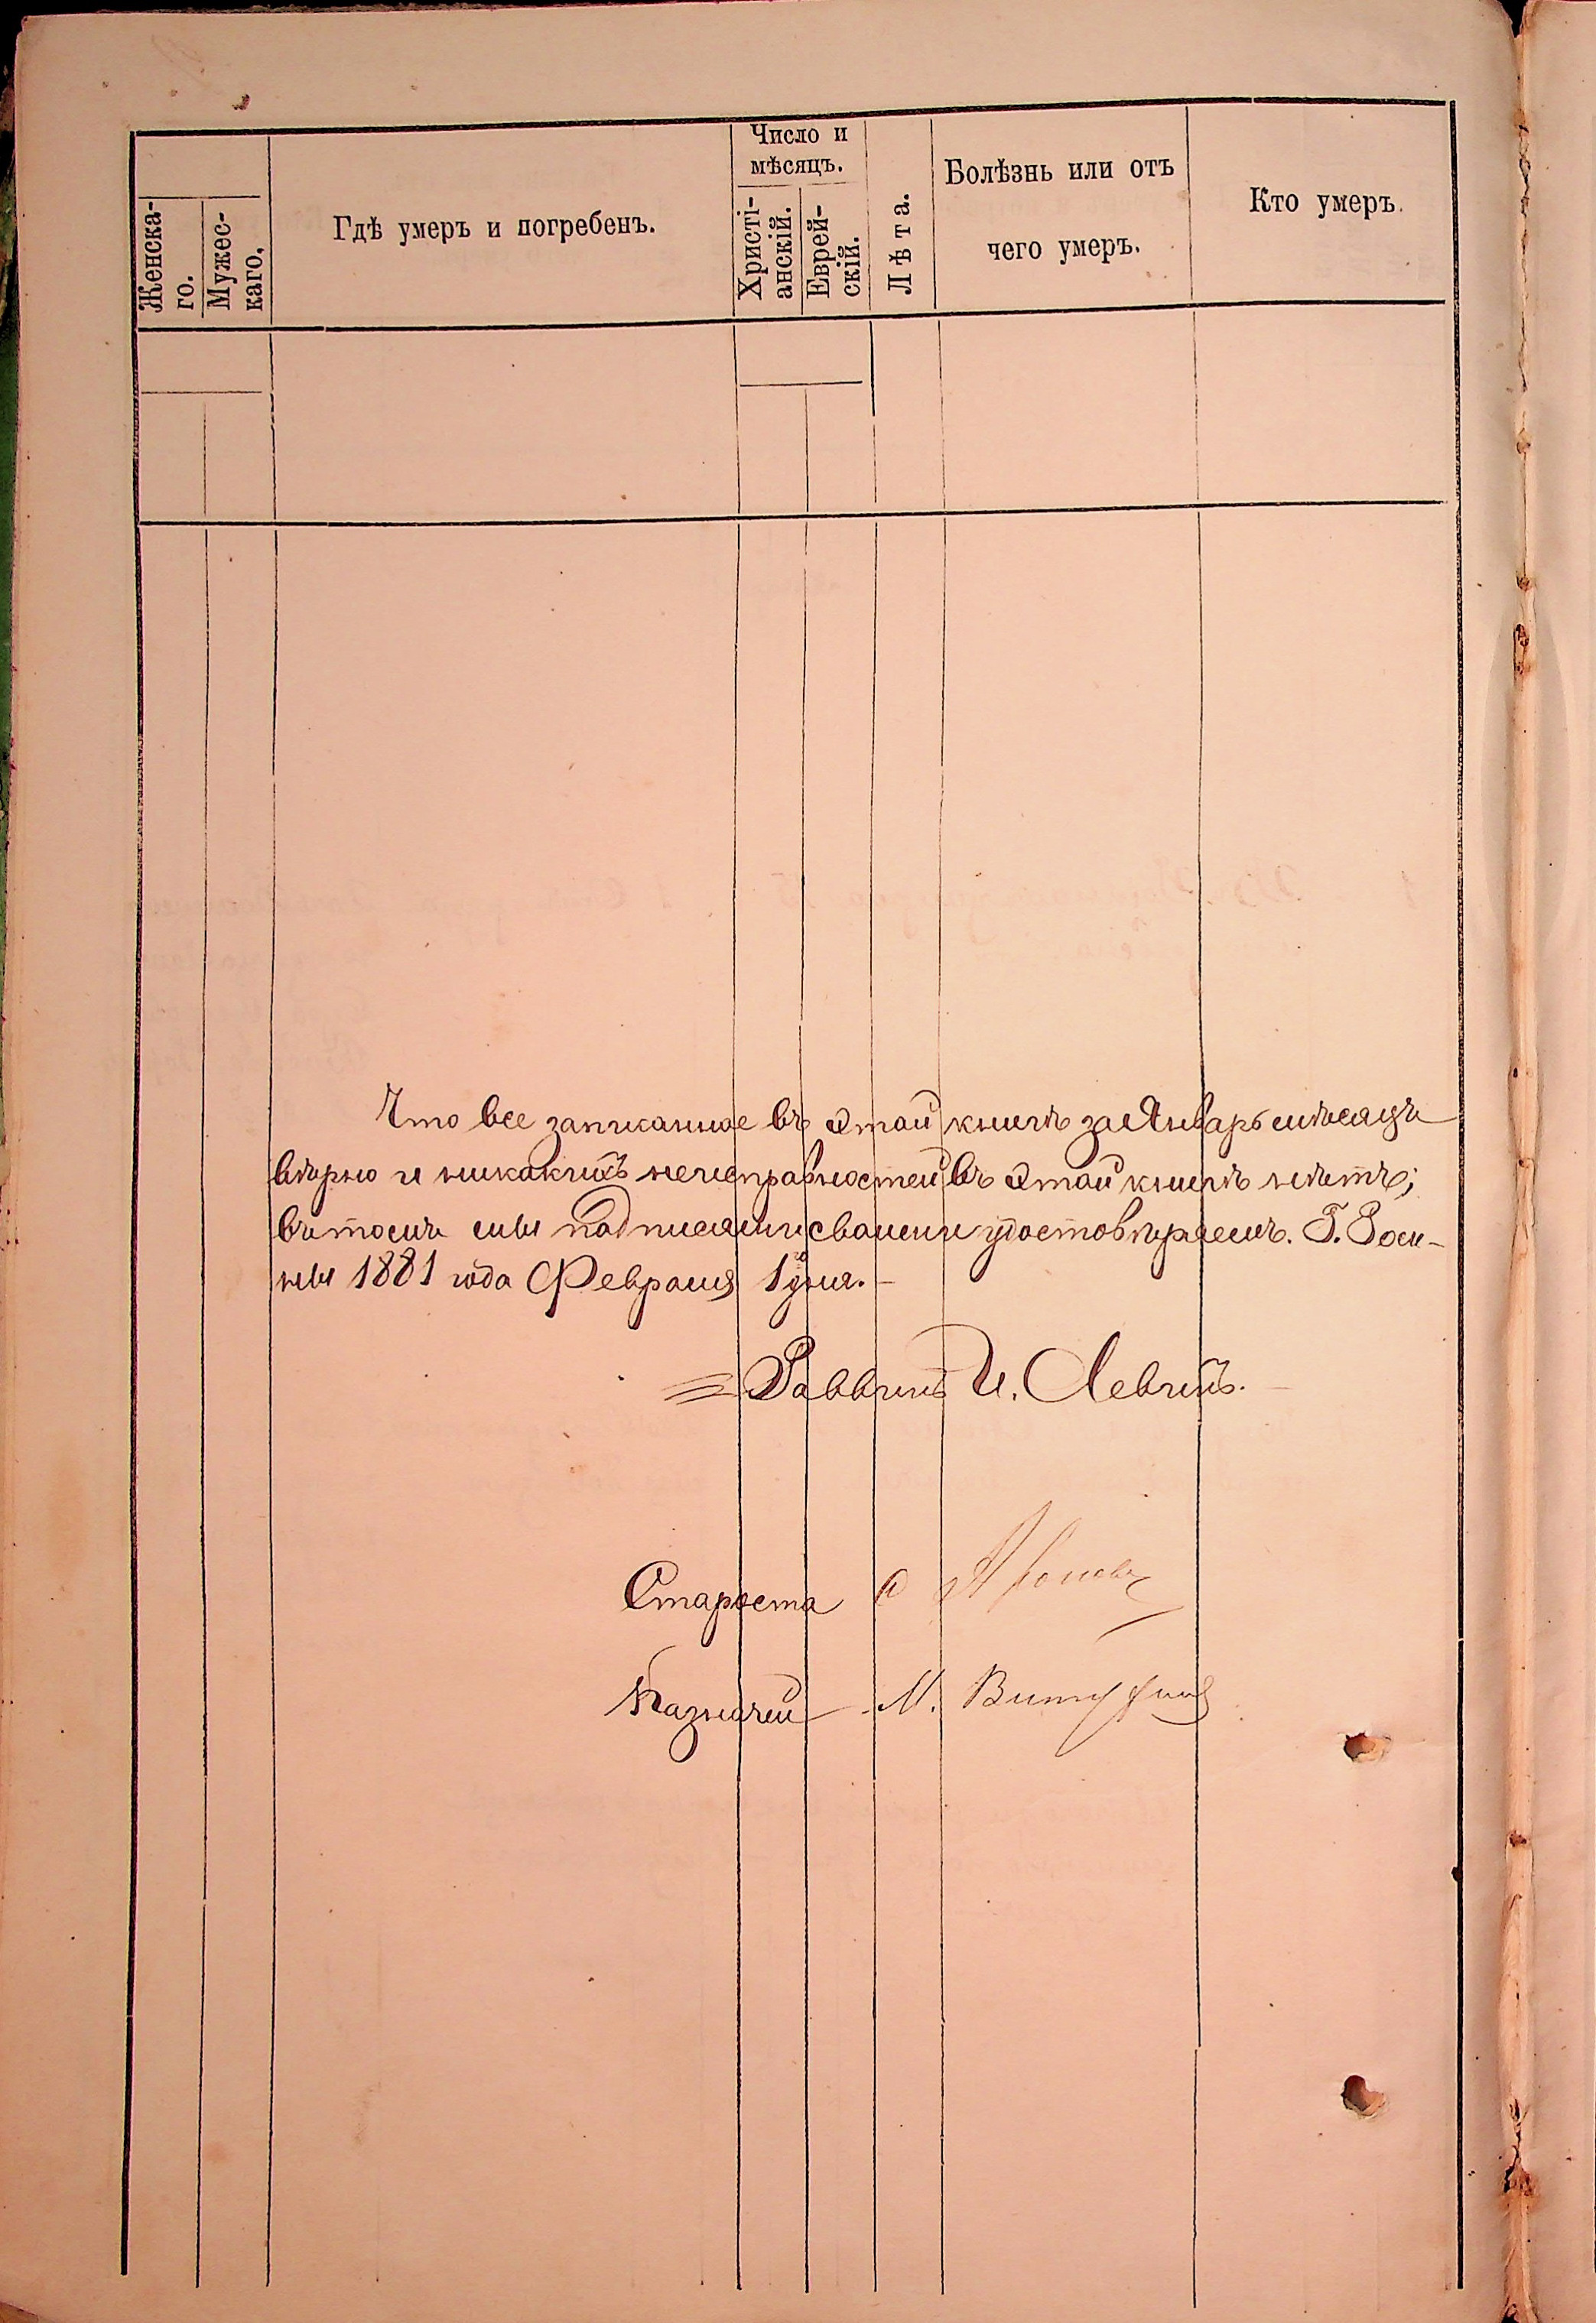 Женска-
го.
Мужес-
каго.
Гдѣ умеръ и погребенъ.
Число и
мѣсяцъ.
Христі-
анскій.
Еврей-
скій.
Лѣта.
Болѣзнь или отъ
чего умеръ.
Кто умеръ.
Что все записанное въ этой книгѣ за Январь мѣсяцъ
вѣрно и никакихъ неисправностей въ этой книгѣ нѣтъ;
въ томъ мы подписями своими удостовѣряемъ. Г. Росі-
ены 1881 года Февраля 1го дня.
Раввинъ И. Левинъ.
Староста
Казначей М.